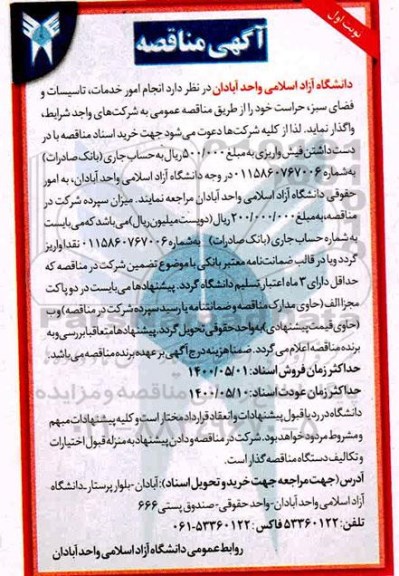 نوبت اول
آگهی مناقصه
دانشگاه آزاد اسلامی واحد آبادان در نظر دارد انجام امور خدمات، تاسیسات و
فضای سبز، حراست خود را از طریق مناقصه عمومی به شرکت‌های واجد شرایط،
واگذار نماید. لذا از کلیه شرکت‌ها دعوت می‌شود جهت خرید اسناد مناقصه با در
دست داشتن فیش واریزی به مبلغ ۵۰۰/۰۰۰ ریال به حساب جاری (بانک صادرات)
به‌شماره ۰۱۱۵۸۶۰۷۶۷۰۰۶ در وجه دانشگاه آزاد اسلامی واحد آبادان، به امور
حقوقی دانشگاه آزاد اسلامی واحد آبادان مراجعه نمایند. میزان سپرده شرکت در
مناقصه، به مبلغ ۲۰۰/۰۰۰/۰۰۰ ریال (دویست میلیون ریال) می‌باشد که می‌بایست
به شماره حساب جاری (بانک صادرات) به شماره ۰۱۱۵۸۶۰۷۶۷۰۰۶ نقدا واریز
گردد و یا در قالب ضمانت‌نامه معتبر بانکی با موضوع تضمین شرکت در مناقصه که
حداقل دارای ۳ ماه اعتبار تسلیم دانشگاه گردد. پیشنهادها می‌بایست در دو پاکت
مجزا الف (حاوی مدارک مناقصه و ضمانتنامه یا رسید سپرده شرکت در مناقصه) و ب
(حاوی قیمت پیشنهادی) به واحد حقوقی تحویل گردد. پیشنهادها متعاقبا بررسی و به
برنده مناقصه اعلام می‌گردد. ضمنا هزینه درج آگهی بر عهده برنده مناقصه می‌باشد.
حداکثر زمان فروش اسناد: ۱۴۰۰/۰۵/۰۱
حداکثر زمان عودت اسناد: ۱۴۰۰/۰۵/۱۰
دانشگاه در رد یا قبول پیشنهادات و انعقاد قرارداد مختار است و کلیه پیشنهادات مبهم
و مشروط مردود خواهد بود. شرکت در مناقصه و دادن پیشنهاد به منزله قبول اختیارات
و تکالیف دستگاه مناقصه گذار است.
آدرس (جهت مراجعه جهت خرید و تحویل اسناد): آبادان - بلوار پرستار - دانشگاه
آزاد اسلامی واحد آبادان - واحد حقوقی - صندوق پستی ۶۶۶
تلفن: ۵۳۳۶۰۱۲۲ فاکس: ۵۳۳۶۰۱۲۲-۰۶۱
روابط عمومی دانشگاه آزاد اسلامی واحد آبادان